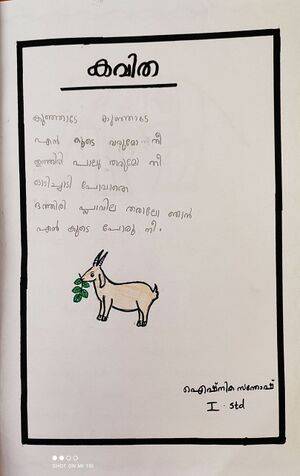 കവിത
കുഞ്ഞാടേ കുഞ്ഞാടേ
എൻ കൂടെ വരുമോ നീ
ഇത്തിരി പാലു തരുമോ നീ
ഓടിച്ചാടി പോവാതെ
ഒത്തിരി പ്ലാവില തരാലോ ഞാൻ
എൻ കൂടെ പോരു നീ.
ഐഷ്നിക സന്തോഷ്
I. std
SHOT ON MI 10i